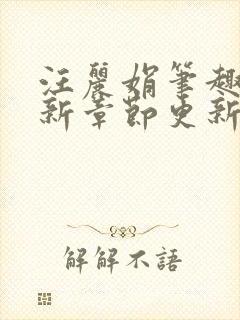 汪麗娟筆趣
新章節更新
解解不語